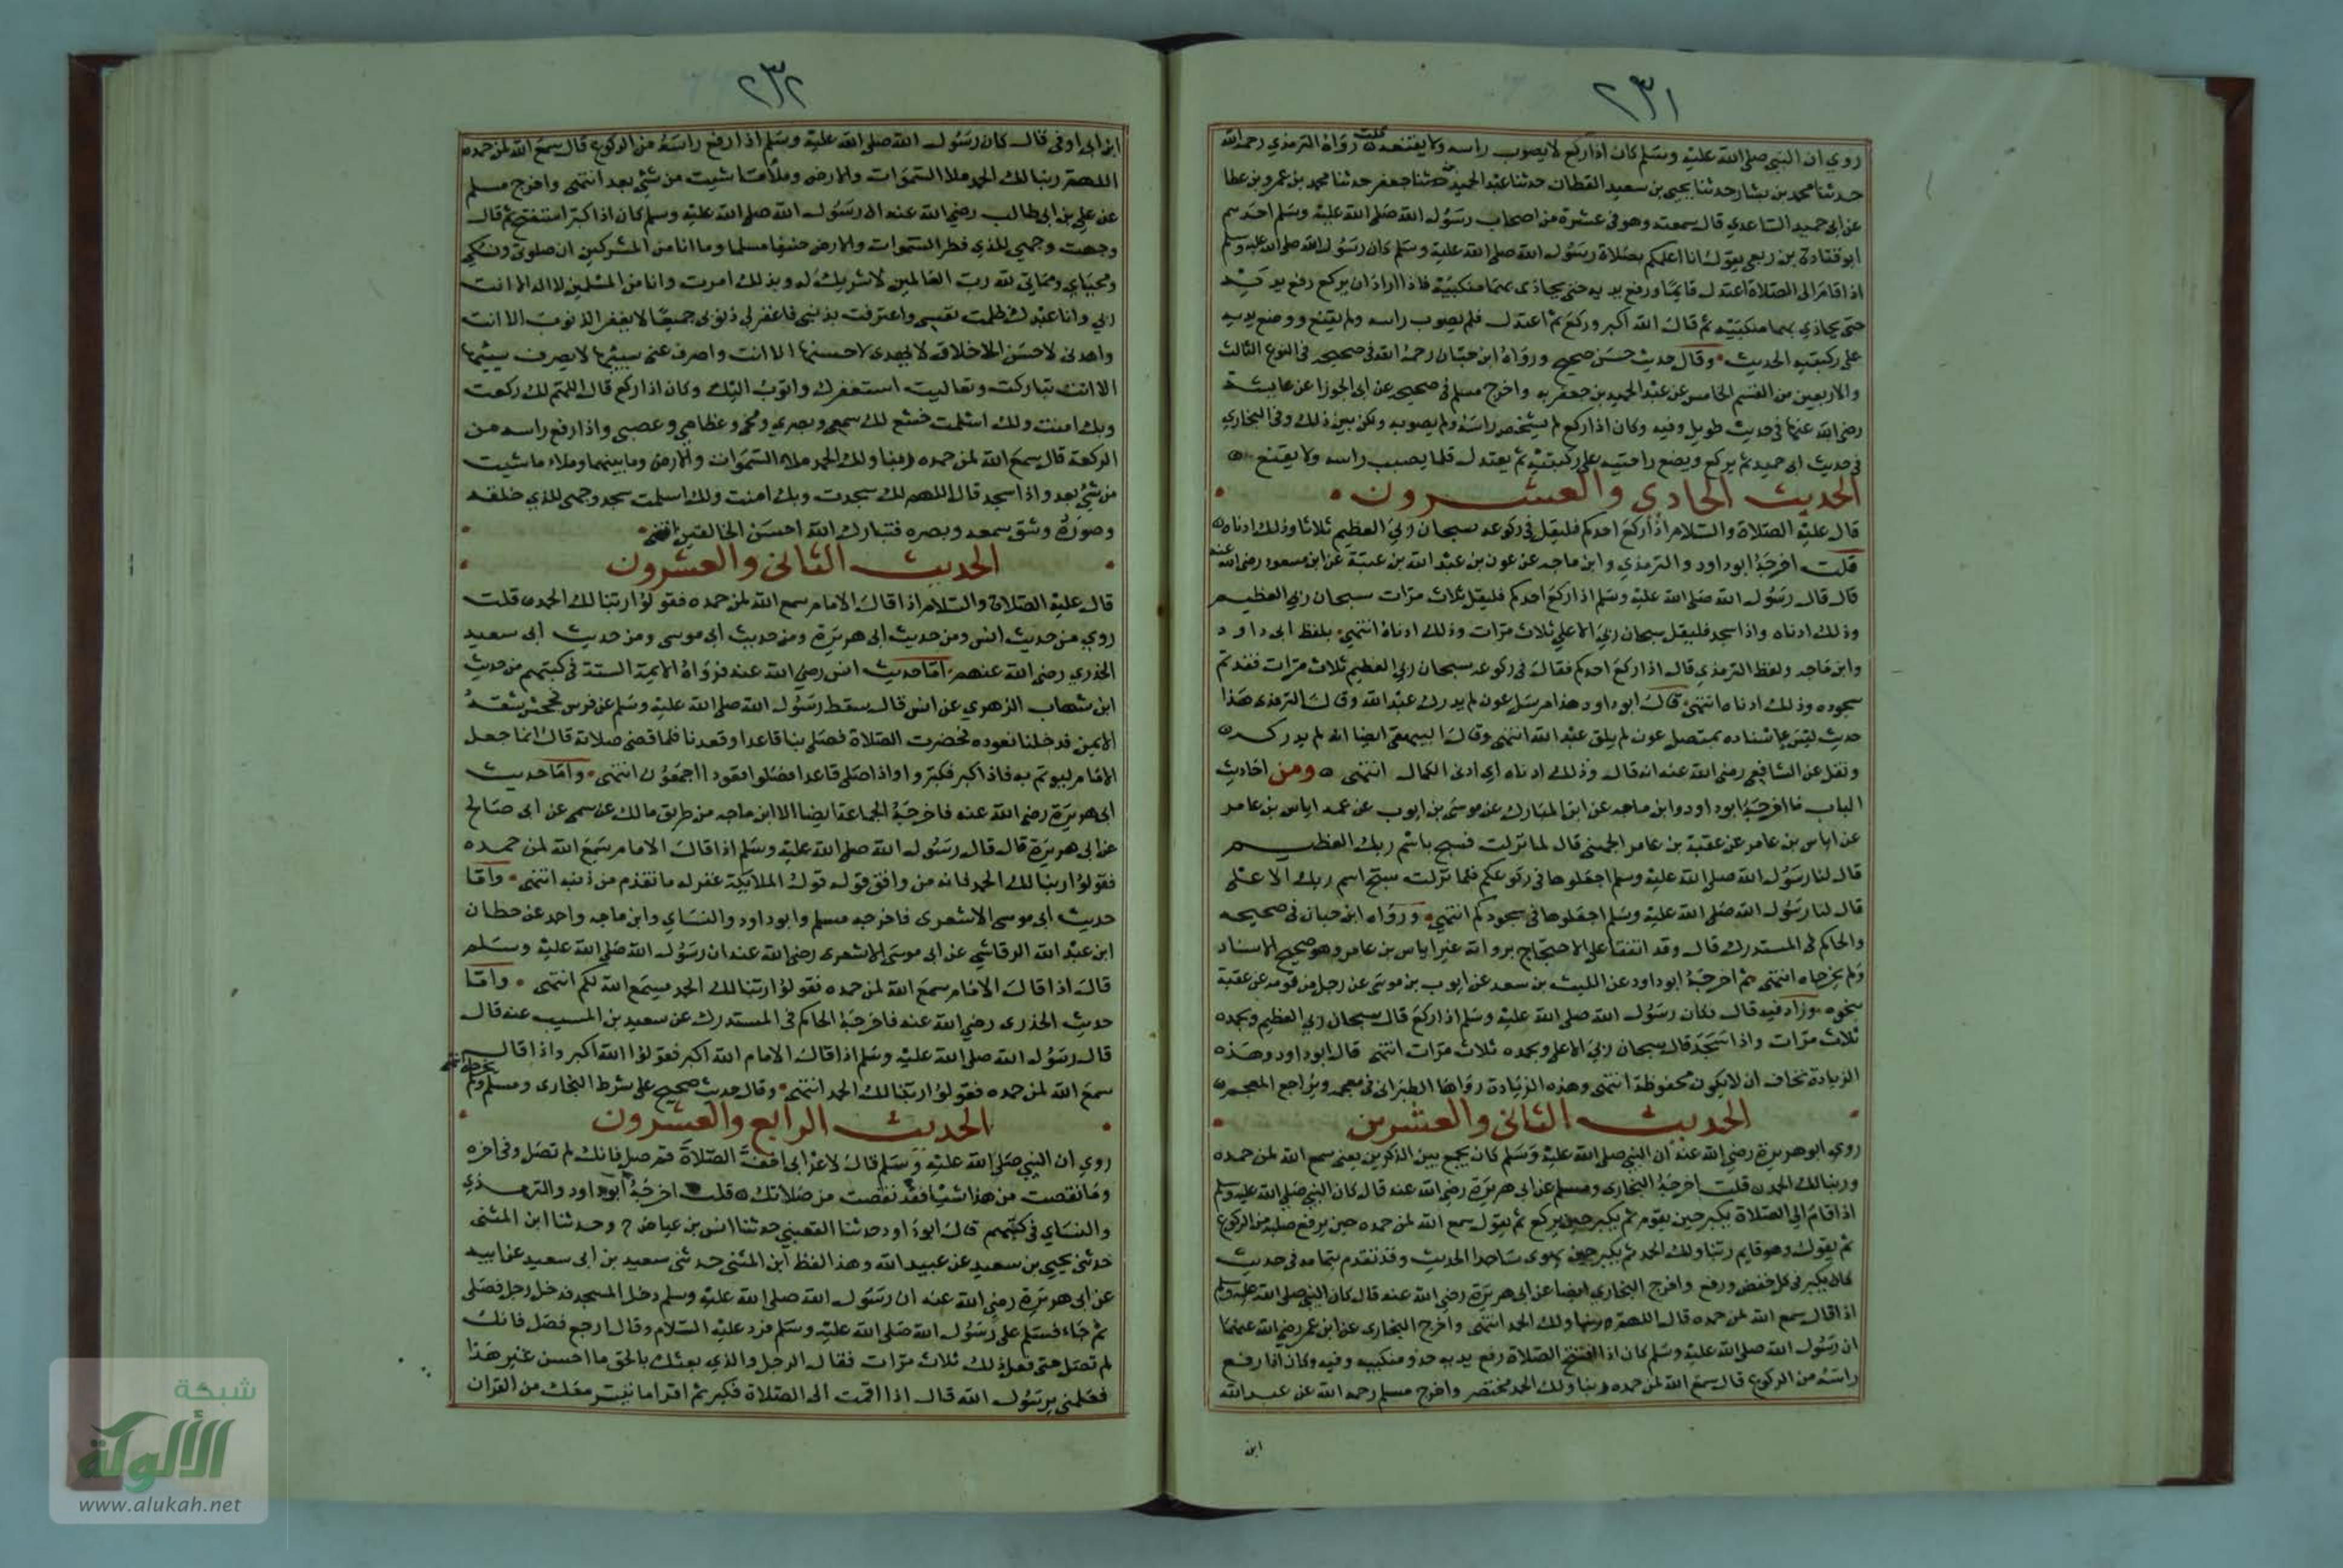 ٢٣١
روي ان النبي صلى الله عليه وسلم كان اذا ركع لا يصوب راسه ولا يقنعه قلت رواه الترمذي رحمه الله
حدثنا محمد بن بشار حدثنا يحيى بن سعيد القطان حدثنا عبد الحميد بن جعفر حدثنا محمد بن عمرو بن عطا
عن ابي حميد الساعدي قال سمعته وهو في عشرة من اصحاب رسول الله صلى الله عليه وسلم احدهم
ابو قتادة بن ربعي يقول انا اعلمكم بصلاة رسول الله صلى الله عليه وسلم كان رسول الله صلى الله عليه وسلم
اذا قام الى الصلاة اعتدل قايما ورفع يديه حتى يحاذي بهما منكبيه فاذا اراد ان يركع رفع يديه
حتى يحاذي بهما منكبيه ثم قال الله اكبر وركع ثم اعتدل فلم يصوب راسه ولم يقنع ووضع يديه
على ركبتيه الحديث وقال حديث حسن صحيح ورواه ابن حبان رحمه الله في صحيحه في النوع الثالث
والاربعين من القسم الخامس عن عبد الحميد بن جعفر به واخرج مسلم في صحيحه عن ابي الجوزا عن عايشة
رضي الله عنها في حديث طويل وفيه وكان اذا ركع لم يشخص راسه ولم يصوبه ولكن بين ذلك وفي البخاري
في حديث ابي حميد ثم يركع ويضع راحتيه على ركبتيه ثم يعتدل فلا يصبب راسه ولا يقنع
الحديث الحادي والعشرون
قال عليه الصلاة والسلام اذا ركع احدكم فليقل في ركوعه سبحان ربي العظيم ثلاثا وذلك ادناه
قلت اخرجه ابو داود والترمذي وابن ماجه عن عون بن عبد الله بن عتبة عن ابن مسعود رضي الله عنه
قال قال رسول الله صلى الله عليه وسلم اذا ركع احدكم فليقل ثلاث مرات سبحان ربي العظيم
وذلك ادناه واذا سجد فليقل سبحان ربي الاعلى ثلاث مرات وذلك ادناه انتهى بلفظ ابي داود
وابن ماجه ولفظ الترمذي قال اذا ركع احدكم فقال في ركوعه سبحان ربي العظيم ثلاث مرات فقد تم
سجوده وذلك ادناه انتهى قال ابو داود هذا مرسل عون لم يدرك عبد الله وقال الترمذي هذا
حديث ليس اسناده بمتصل عون لم يلق عبد الله انتهى وقال البيهقي ايضا انه لم يدركه
ونقل عن الشافعي رضي الله عنه انه قال وذلك ادناه اي ادنى الكمال انتهى ومن احاديث
الباب ما اخرجه ابو داود وابن ماجه عن ابن المبارك عن موسى بن ايوب عن عمه اياس بن عامر
عن اياس بن عامر عن عقبة بن عامر الجهني قال لما نزلت فسبح باسم ربك العظيم
قال لنا رسول الله صلى الله عليه وسلم اجعلوها في ركوعكم فلما نزلت سبح اسم ربك الاعلى
قال لنا رسول الله صلى الله عليه وسلم اجعلوها في سجودكم انتهى ورواه ابن حبان في صحيحه
والحاكم في المستدرك قال وقد اتفقا على الاحتجاج برواته غير اياس بن عامر وهو صحيح الاسناد
ولم يخرجاه انتهى ثم اخرجه ابو داود عن الليث بن سعد عن ايوب بن موسى عن رجل من قومه عن عقبة
بنحوه وزاد فيه قال فكان رسول الله صلى الله عليه وسلم اذا ركع قال سبحان ربي العظيم وبحمده
ثلاث مرات واذا سجد قال سبحان ربي الاعلى وبحمده ثلاث مرات انتهى قال ابو داود وهذه
الزيادة نخاف ان لا يكون محفوظة انتهى وهذه الزيادة رواها الطبراني في معجمه ويراجع المعجم
الحديث الثاني والعشرين
روي ابو هريرة رضي الله عنه ان النبي صلى الله عليه وسلم كان يجمع بين الذكرين يعني سمع الله لمن حمده
وربنا لك الحمد قلت اخرجه البخاري ومسلم عن ابي هريرة رضي الله عنه قال كان النبي صلى الله عليه وسلم
اذا قام الى الصلاة يكبر حين يقوم ثم يكبر حين يركع ثم يقول سمع الله لمن حمده حين يرفع صلبه من الركوع
ثم يقول وهو قايم ربنا ولك الحمد ثم يكبر حين يهوى ساجدا الحديث وقد تقدم بتمامه في حديث
كان يكبر في كل خفض ورفع واخرج البخاري ايضا عن ابي هريرة رضي الله عنه قال كان النبي صلى الله عليه وسلم
اذا قال سمع الله لمن حمده قال اللهم ربنا ولك الحمد انتهى واخرج البخاري عن ابن عمر رضي الله عنهما
ان رسول الله صلى الله عليه وسلم كان اذا افتتح الصلاة رفع يديه حذو منكبيه وفيه وكان اذا رفع
راسه من الركوع قال سمع الله لمن حمده ربنا ولك الحمد مختصر واخرج مسلم رحمه الله عن عبد الله
ابن
٢٣٢
ابن ابي اوفى قال كان رسول الله صلى الله عليه وسلم اذا رفع راسه من الركوع قال سمع الله لمن حمده
اللهم ربنا لك الحمد ملا السموات والارض وملا ما شيت من شي بعد انتهى واخرج مسلم
عن علي بن ابي طالب رضي الله عنه ان رسول الله صلى الله عليه وسلم كان اذا كبر استفتح ثم قال
وجهت وجهي للذي فطر السموات والارض حنيفا مسلما وما انا من المشركين ان صلوتي ونسكي
ومحياي ومماتي لله رب العالمين لا شريك له وبذلك امرت وانا من المسلمين لا اله الا انت
ربي وانا عبدك ظلمت نفسي واعترفت بذنبي فاغفر لي ذنوبي جميعا لا يغفر الذنوب الا انت
واهدني لاحسن الاخلاق لا يهدي لاحسنها الا انت واصرف عني سيئها لا يصرف سيئها
الا انت تباركت وتعاليت استغفرك واتوب اليك وكان اذا ركع قال اللهم لك ركعت
وبك امنت ولك اسلمت خشع لك سمعي وبصري ومخي وعظامي وعصبي واذا رفع راسه من
الركعة قال سمع الله لمن حمده ربنا ولك الحمد ملاء السموات والارض وما بينهما وملاء ما شيت
من شي بعد واذا سجد قال اللهم لك سجدت وبك امنت ولك اسلمت سجد وجهي للذي خلقه
وصوره وشق سمعه وبصره فتبارك الله احسن الخالقين انتهى
الحديث الثاني والعشرون
قال عليه الصلاة والسلام اذا قال الامام سمع الله لمن حمده فقولوا ربنا لك الحمد قلت
روي من حديث انس ومن حديث ابي هريرة ومن حديث ابي موسى ومن حديث ابي سعيد
الخدري رضي الله عنهم اما حديث انس رضي الله عنه فرواه الايمة الستة في كتبهم من حديث
ابن شهاب الزهري عن انس قال سقط رسول الله صلى الله عليه وسلم عن فرس فجحش شقه
الايمن فدخلنا نعوده فحضرت الصلاة فصلى بنا قاعدا وقعدنا فلما قضى صلاته قال انما جعل
الامام ليوتم به فاذا كبر فكبروا واذا صلى قاعدا فصلوا قعودا اجمعون انتهى واما حديث
ابي هريرة رضي الله عنه فاخرجه الجماعة ايضا الا ابن ماجه من طريق مالك عن سمي عن ابي صالح
عن ابي هريرة قال قال رسول الله صلى الله عليه وسلم اذا قال الامام سمع الله لمن حمده
فقولوا ربنا لك الحمد فانه من وافق قوله قول الملايكة غفر له ما تقدم من ذنبه انتهى واما
حديث ابي موسى الاشعري فاخرجه مسلم وابو داود والنساي وابن ماجه واحد عن حطان
ابن عبد الله الرقاشي عن ابي موسى الاشعري رضي الله عنه ان رسول الله صلى الله عليه وسلم
قال اذا قال الامام سمع الله لمن حمده فقولوا ربنا لك الحمد يسمع الله لكم انتهى واما
حديث الخدري رضي الله عنه فاخرجه الحاكم في المستدرك عن سعيد بن المسيب عنه قال
قال رسول الله صلى الله عليه وسلم اذا قال الامام الله اكبر فقولوا الله اكبر واذا قال
سمع الله لمن حمده فقولوا ربنا لك الحمد انتهى وقال حديث صحيح على شرط البخاري ومسلم ولم يخرجاه انتهى
الحديث الرابع والعشرون
روي ان النبي صلى الله عليه وسلم قال لاعرابي اخف الصلاة قم صل فانك لم تصل وفي اخره
وما نقصت من هذا شيا فقد نقصت من صلاتك قلت اخرجه ابو داود والترمذي
والنساي في كتبهم قال ابو داود حدثنا القعنبي حدثنا انس بن عياض ح وحدثنا ابن المثنى
حدثني يحيى بن سعيد عن عبيد الله وهذا لفظ ابن المثنى حدثني سعيد بن ابي سعيد عن ابيه
عن ابي هريرة رضي الله عنه ان رسول الله صلى الله عليه وسلم دخل المسجد فدخل رجل فصلى
ثم جاء فسلم على رسول الله صلى الله عليه وسلم فرد عليه السلام وقال ارجع فصل فانك
لم تصل حتى فعل ذلك ثلاث مرات فقال الرجل والذي بعثك بالحق ما احسن غير هذا
فعلمني يرسول الله قال اذا اقمت الى الصلاة فكبر ثم اقرا ما تيسر معك من القران
شبكة
الألوكة
www.alukah.net